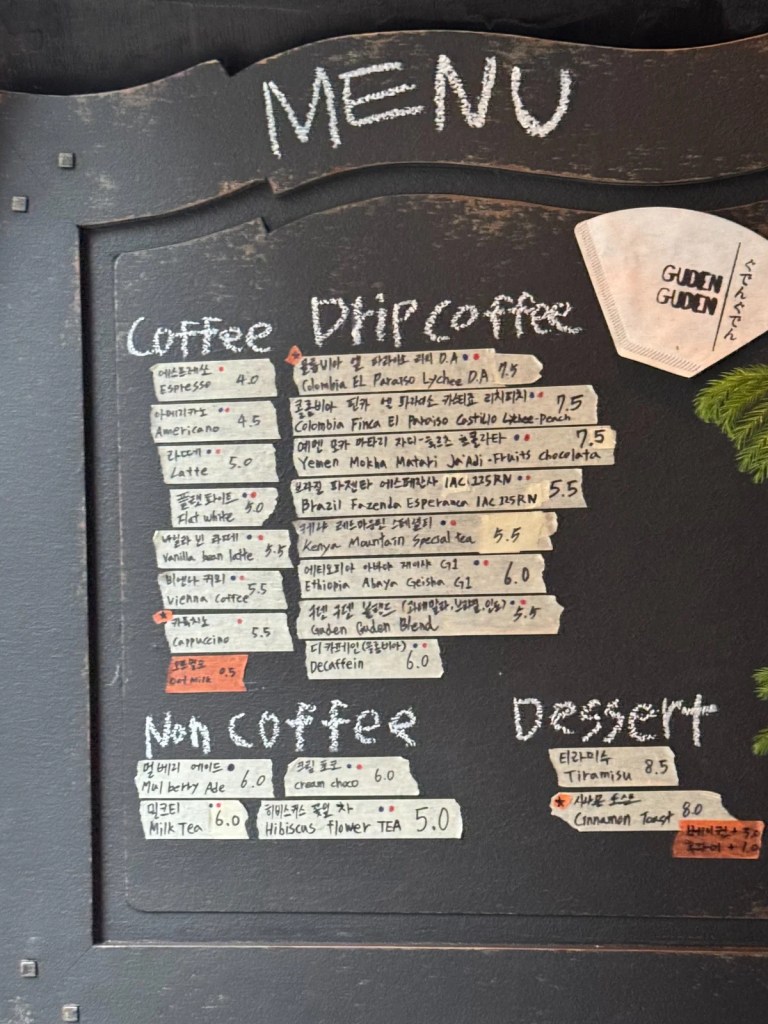 MENU
GUDEN
GUDEN
ぐでんぐでん
Coffee
에스프레소
Espresso 4.0
아메리카노
Americano 4.5
라떼
Latte 5.0
플랫 화이트
Flat white 5.0
바닐라 빈 라떼
Vanilla bean latte 5.5
비엔나 커피
Vienna coffee 5.5
카푸치노
Cappuccino 5.5
오트밀크
Oat Milk 0.5
Drip coffee
콜롬비아 엘 파라이소 리치 D.A
Colombia EL Paraiso Lychee D.A 7.5
콜롬비아 핀카 엘 파라이소 카스티요 리치피치
Colombia Finca El Paraiso Castillo Lychee-Peach 7.5
예멘 모카 마타리 자디-프루츠 쵸콜라타
Yemen Mokha Matari Ja'Adi-Fruits chocolata 7.5
브라질 파젠다 에스페란사 IAC 125RN
Brazil Fazenda Esperanca IAC 125RN 5.5
케냐 마운틴 스페셜티
Kenya Mountain Special tea 5.5
에티오피아 아바야 게이샤 G1
Ethiopia Abaya Geisha G1 6.0
구덴 구덴 블렌드 (과테말라, 브라질, 인도)
Guden Guden Blend 5.5
디카페인 (콜롬비아)
Decaffein 6.0
Non coffee
멀베리 에이드
Mulberry Ade 6.0
크림 초코
cream choco 6.0
밀크티
Milk Tea 6.0
히비스커스 꽃잎 차
Hibiscus flower TEA 5.0
Dessert
티라미수
Tiramisu 8.5
시나몬 토스트
Cinnamon Toast 8.0
베이컨 + 3.0
+ 1.0